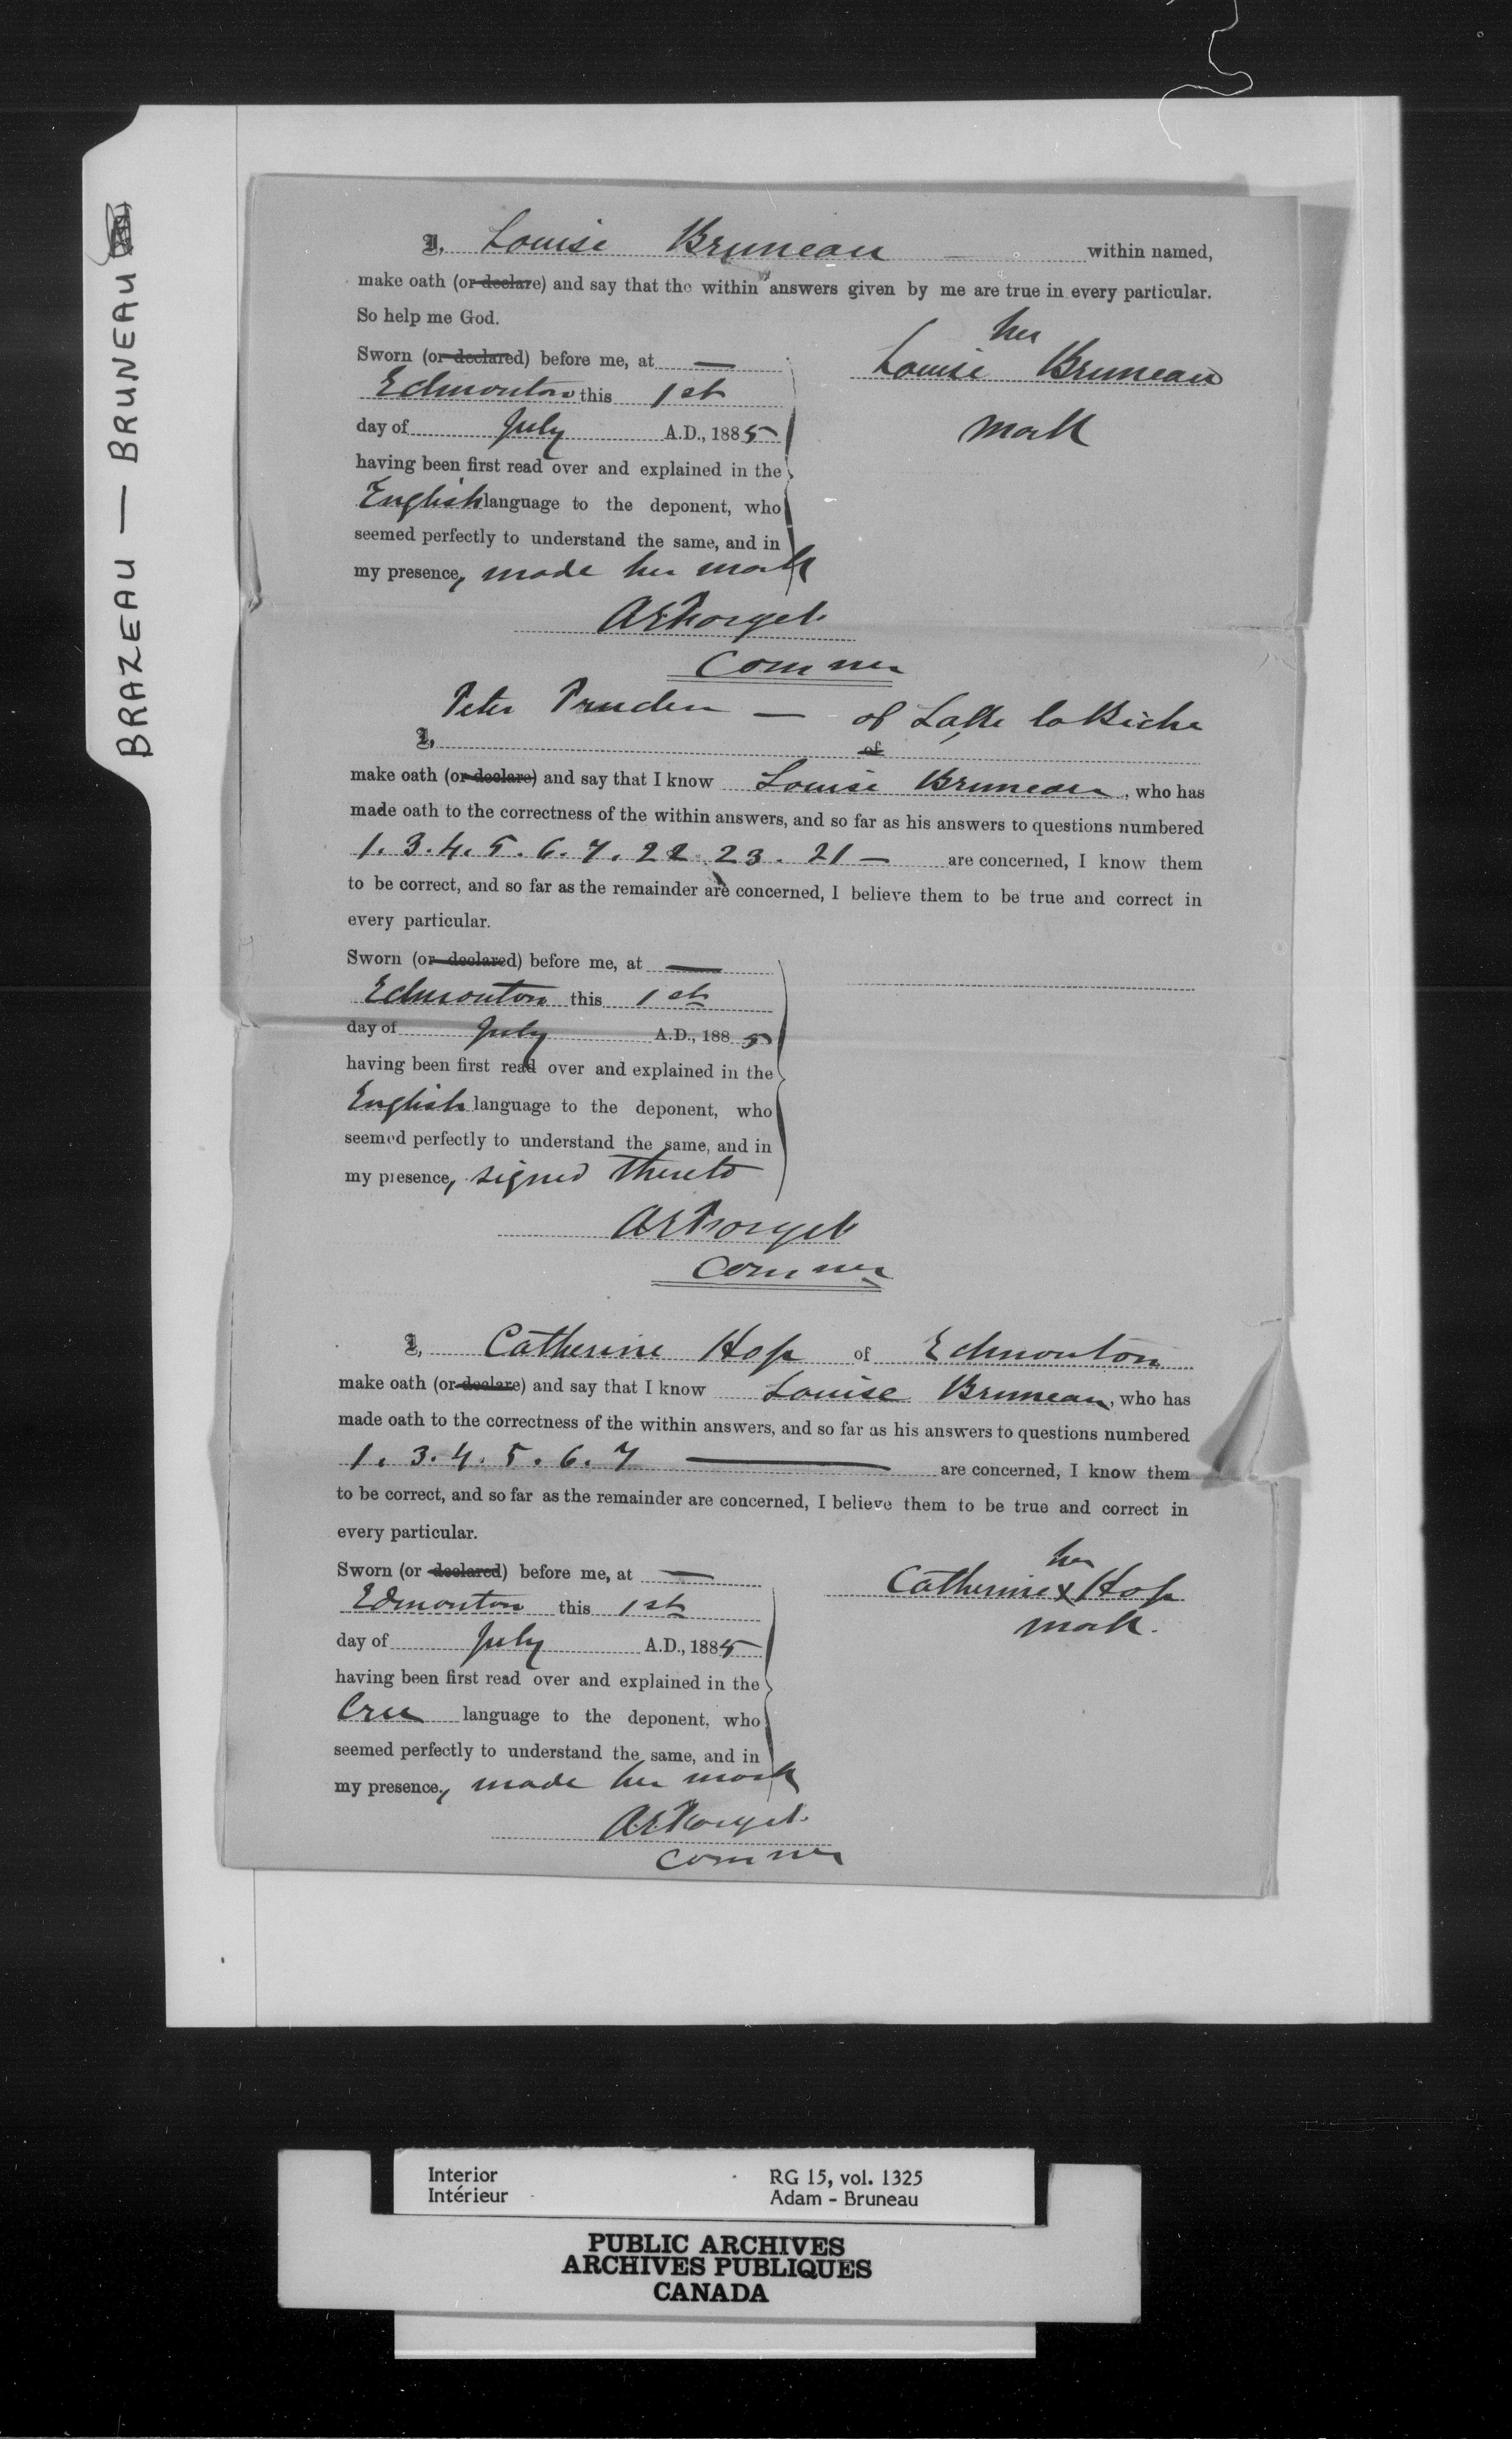 BRAZEAU — BRUNEAU
I, Louise Bruneau — within named,
make oath (or declare) and say that the within answers given by me are true in every particular.
So help me God.
her
Sworn (or declared) before me, at —
Louise Bruneau
Edmonton this 1st
mark
day of July A.D., 1885
having been first read over and explained in the
English language to the deponent, who
seemed perfectly to understand the same, and in
my presence, made her mark
AEForget
Commer
Peter Pruden — of Lake la Biche
I, of
make oath (or declare) and say that I know Louise Bruneau, who has
made oath to the correctness of the within answers, and so far as his answers to questions numbered
1. 3. 4. 5. 6. 7. 22. 23. 21 — are concerned, I know them
to be correct, and so far as the remainder are concerned, I believe them to be true and correct in
every particular.
Sworn (or declared) before me, at —
Edmonton this 1st
day of July A.D., 1885
having been first read over and explained in the
English language to the deponent, who
seemed perfectly to understand the same, and in
my presence, signed thereto
AEForget
Commer
I, Catherine Hop of Edmonton
make oath (or declare) and say that I know Louise Bruneau, who has
made oath to the correctness of the within answers, and so far as his answers to questions numbered
1. 3. 4. 5. 6. 7 — are concerned, I know them
to be correct, and so far as the remainder are concerned, I believe them to be true and correct in
every particular.
her
Sworn (or declared) before me, at —
Catherine x Hop
Edmonton this 1st
mark.
day of July A.D., 1885
having been first read over and explained in the
Cree language to the deponent, who
seemed perfectly to understand the same, and in
my presence, made her mark
AEForget
Commer
Interior RG 15, vol. 1325
Intérieur Adam - Bruneau
PUBLIC ARCHIVES
ARCHIVES PUBLIQUES
CANADA